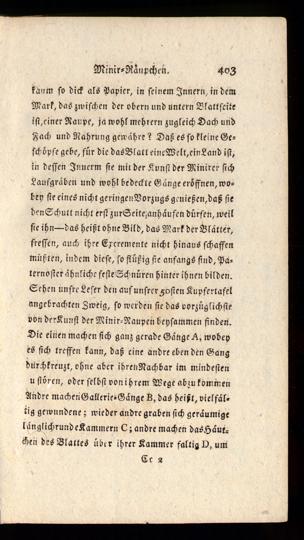 Minir-Räupchen. 403
kaum so dick als Papier, in seinem Innern, in dem
Mark, das zwischen der obern und untern Blattseite
ist, einer Raupe, ja wohl mehrern zugleich Dach und
Fach und Nahrung gewähre? Daß es so kleine Ge-
schöpfe gebe, für die das Blatt eine Welt, ein Land ist,
in dessen Innerm sie mit der Kunst der Minirer sich
Laufgräben und wohl bedeckte Gänge eröffnen, wo-
bey sie eines nicht geringen Vorzugs genießen, daß sie
den Schutt nicht erst zur Seite, anhäufen dürfen, weil
sie ihn—das heißt ohne Bild, das Mark der Blätter,
fressen, auch ihre Excremente nicht hinaus schaffen
müßten, indem diese, so flüßig sie anfangs sind, Pa-
ternoster ähnliche feste Schnüren hinter ihnen bilden.
Sehen unsre Leser den auf unsrer 90sten Kupfertafel
angebrachten Zweig, so werden sie das vorzüglichste
von der Kunst der Minir-Raupen beysammen finden.
Die einen machen sich ganz gerade Gänge A, wobey
es sich treffen kann, daß eine andre eben den Gang
durchkreuzt, ohne aber ihren Nachbar im mindesten
u stören, oder selbst von ihrem Wege abzukommen
Andre machen Gallerie-Gänge B, das heißt, vielfäl-
tig gewundene; wieder andre graben sich geräumige
länglichrunde Kammern C; andre machen das Häut-
chen des Blattes über ihrer Kammer faltig D, um
Cc 2